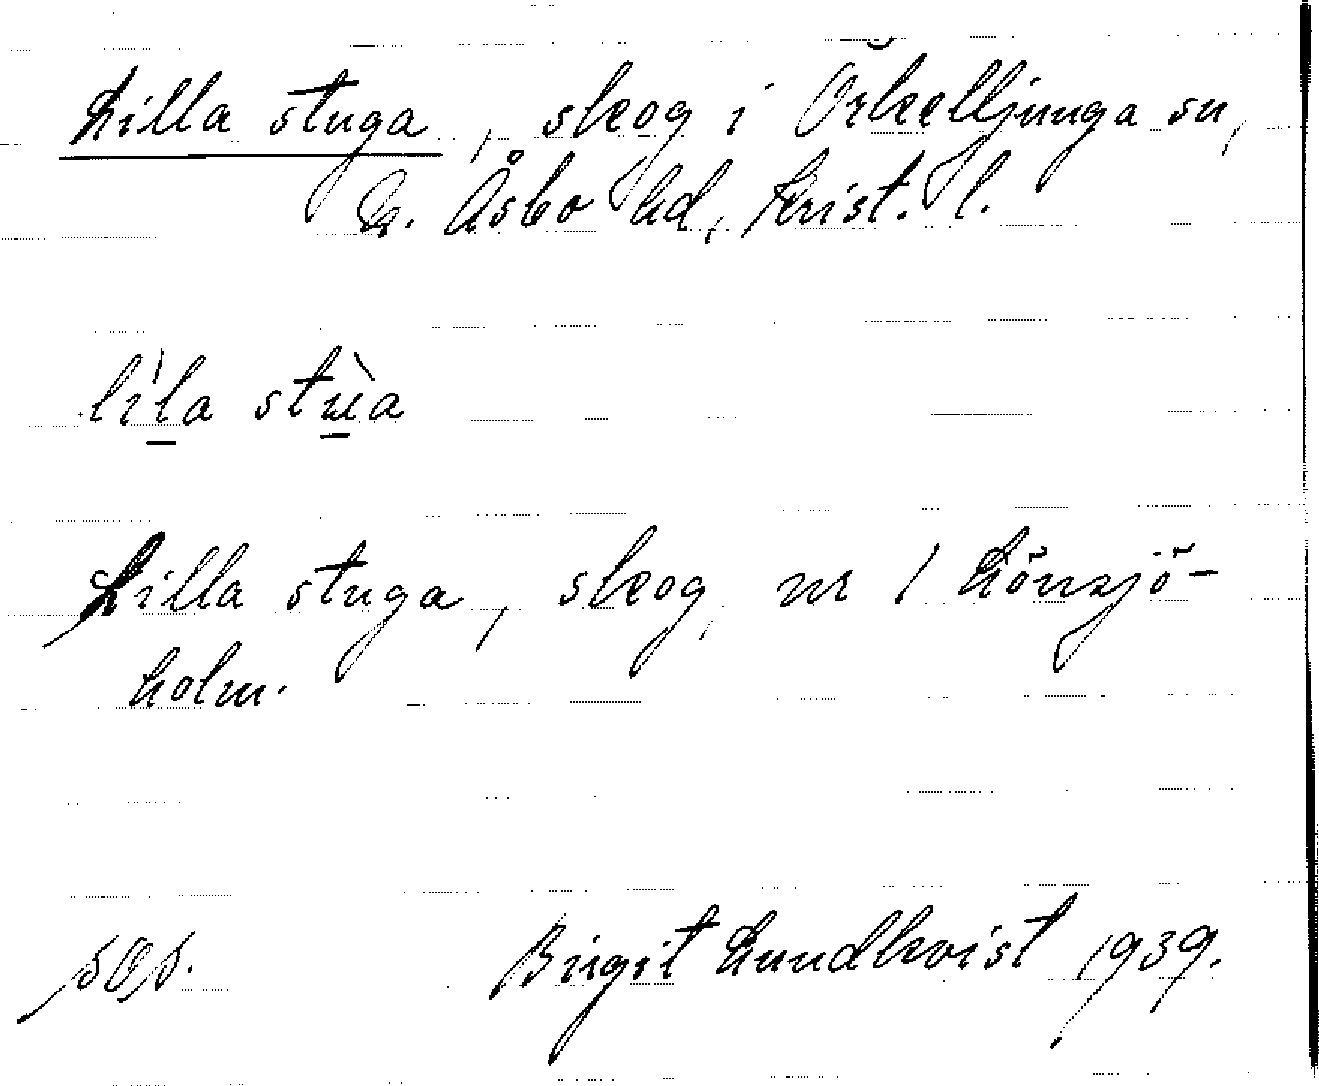 Lilla stuga, skog i Örkelljunga sn,
N. Åsbo hd, Krist. l.
lìla stùa
Lilla stuga, skog, nr 1 Lönsjö-
holm.
Birgit Lundkvist 1939.